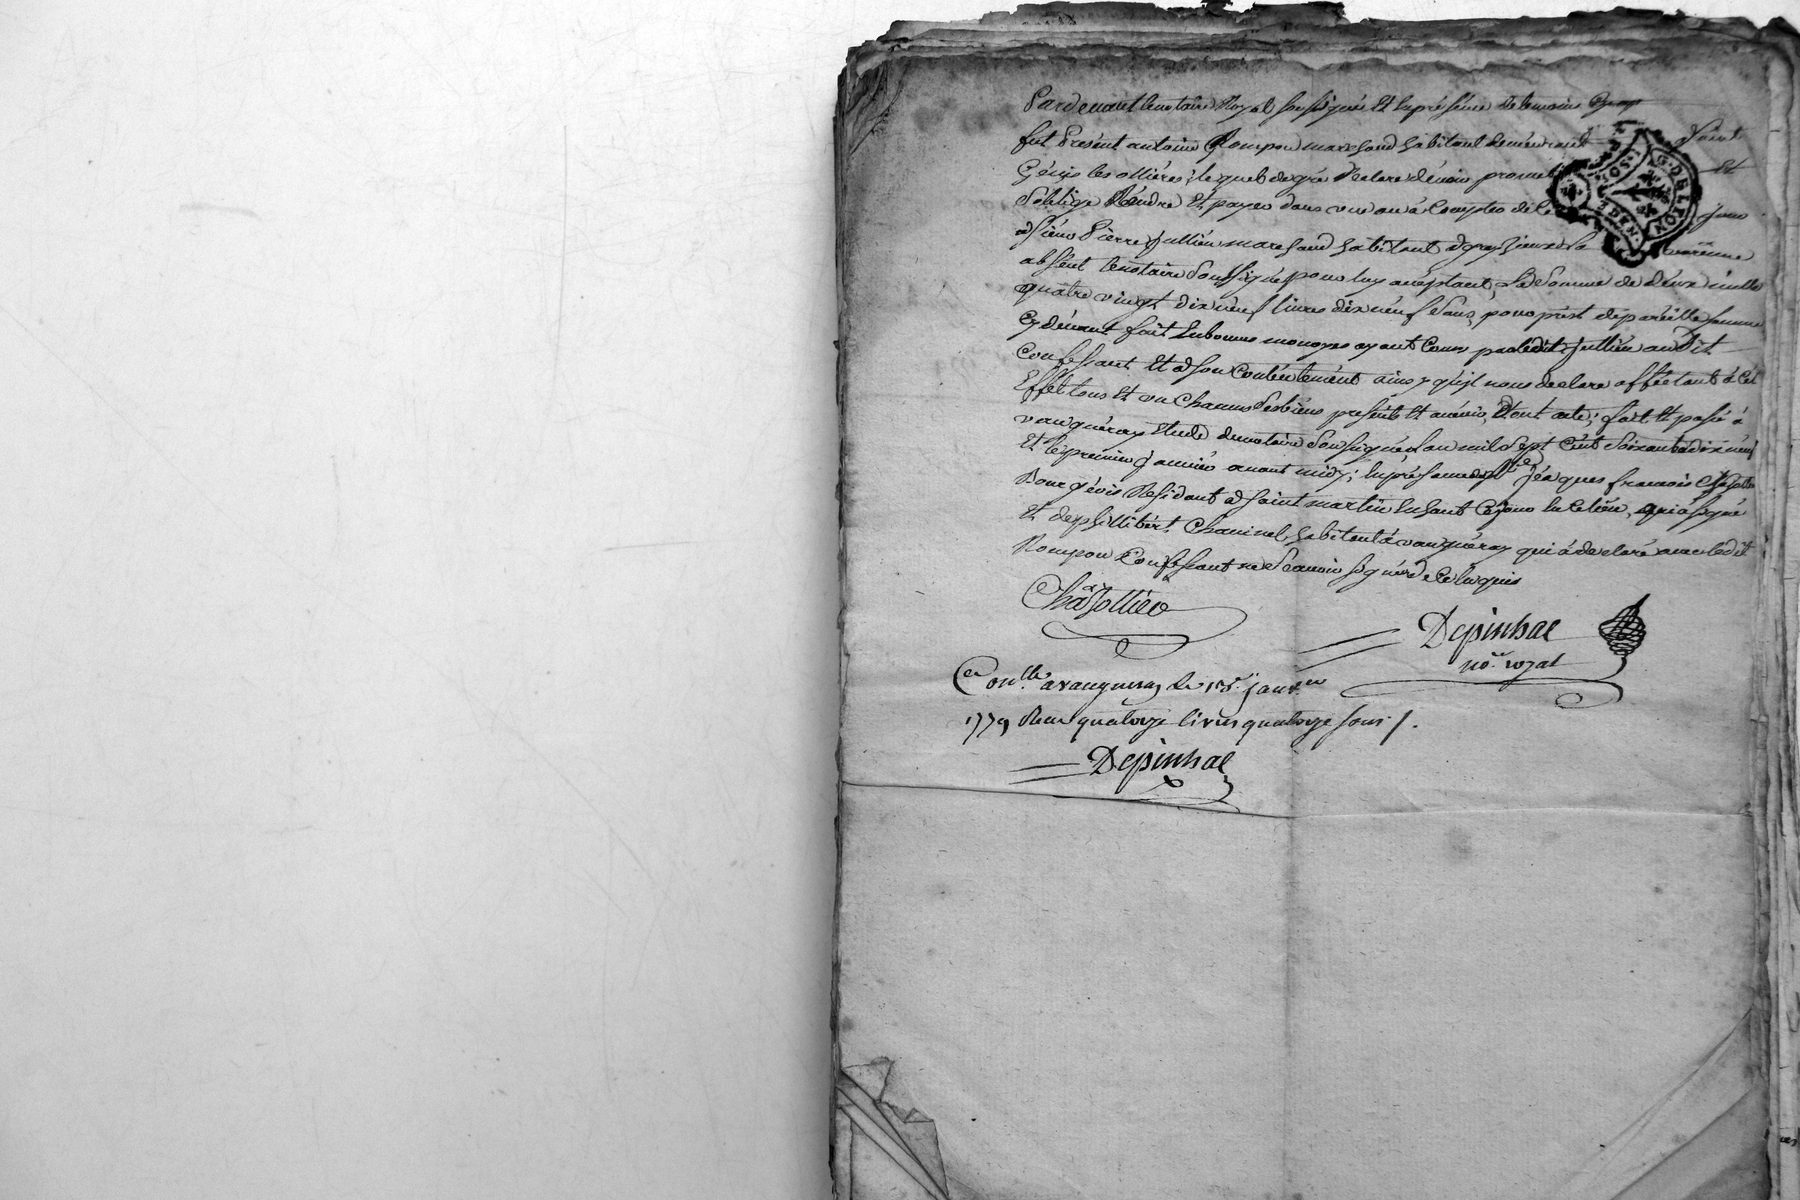 Pardevant le notaire Royal soussigné Et En présence de temoins
fut Présent antoine Rompon marchand habitant Saint
Génis les ollières, lequel de gré declare devoir promet Et
Soblige Rendre Et payer dans un an à Compter de Ce jour
à Sieur Pierre Jullien marchand habitant à grezieu la varenne
absent le notaire Soussigné pour luy acceptant, La Somme de deux mille
quatre vingt dix neuf livres dix neuf Sous, pour prest de pareille Somme
Cy devant fait En bonnes monoyes ayant Cours par ledit Jullien audit
Confessant Et à Son Contentement ainsy qu'il nous declare affectant à Cet
Effet tous Et un Chacuns Ses biens présents Et avenir, Dont acte, fait Et passé à
vaugneray Etude du notaire Soussigné L'an mil Sept Cent Soixante dix neuf
Et le premier Janvier avant midy; En présence de Jacques francois
Bourgeois Résidant à Saint martin En haut Ce jour En Ce lieu, qui a signé
Et de phillibert habitant à vaugneray qui a declaré avec ledit
Rompon Confessant ne Scavoir signer de Ce Enquis
Depinhac
no.re royal
Con.lle a vaugneray Le 15. janv.er
1779 Reçu quatorze livres quatorze sous /.
Depinhac
G. DE LYON
2 DEN.